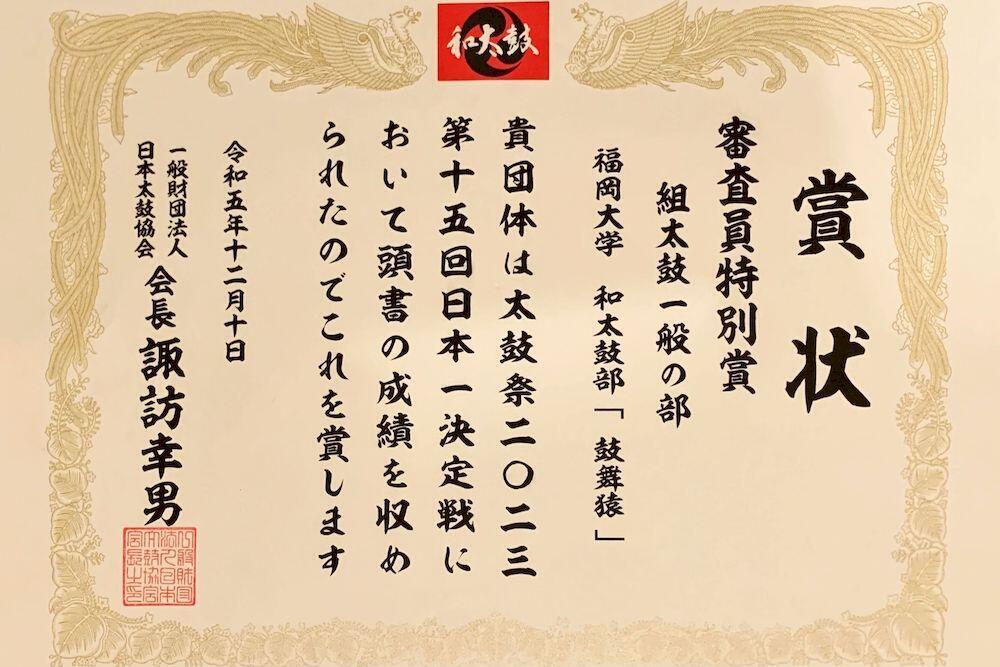 和太鼓
賞状
審査員特別賞
組太鼓一般の部
福岡大学 和太鼓部「鼓舞猿」
貴団体は太鼓祭二〇二三
第十五回日本一決定戦に
おいて頭書の成績を収め
られたのでこれを賞します
令和五年十二月十日
一般財団法人
日本太鼓協会
会長 諏訪幸男